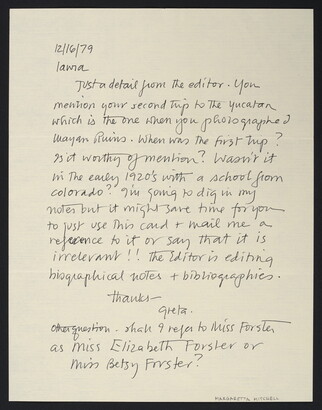 12/16/79
Laura
Just a detail from the editor. You
mention your second trip to the Yucatan
which is the one when you photographed
Mayan Ruins. When was the first trip?
Is it worthy of mention? Wasn't it
in the early 1920's with a school from
Colorado? I'm going to dig in my
notes but it might save time for you
to just use this card + mail me a
reference to it or say that it is
irrelevant!! The Editor is editing
biographical notes + bibliographies.
Thanks—
Greta.
Other question - shall I refer to Miss Forster
as Miss Elizabeth Forster or
Miss Betsy Forster?
MARGARETTA MITCHELL